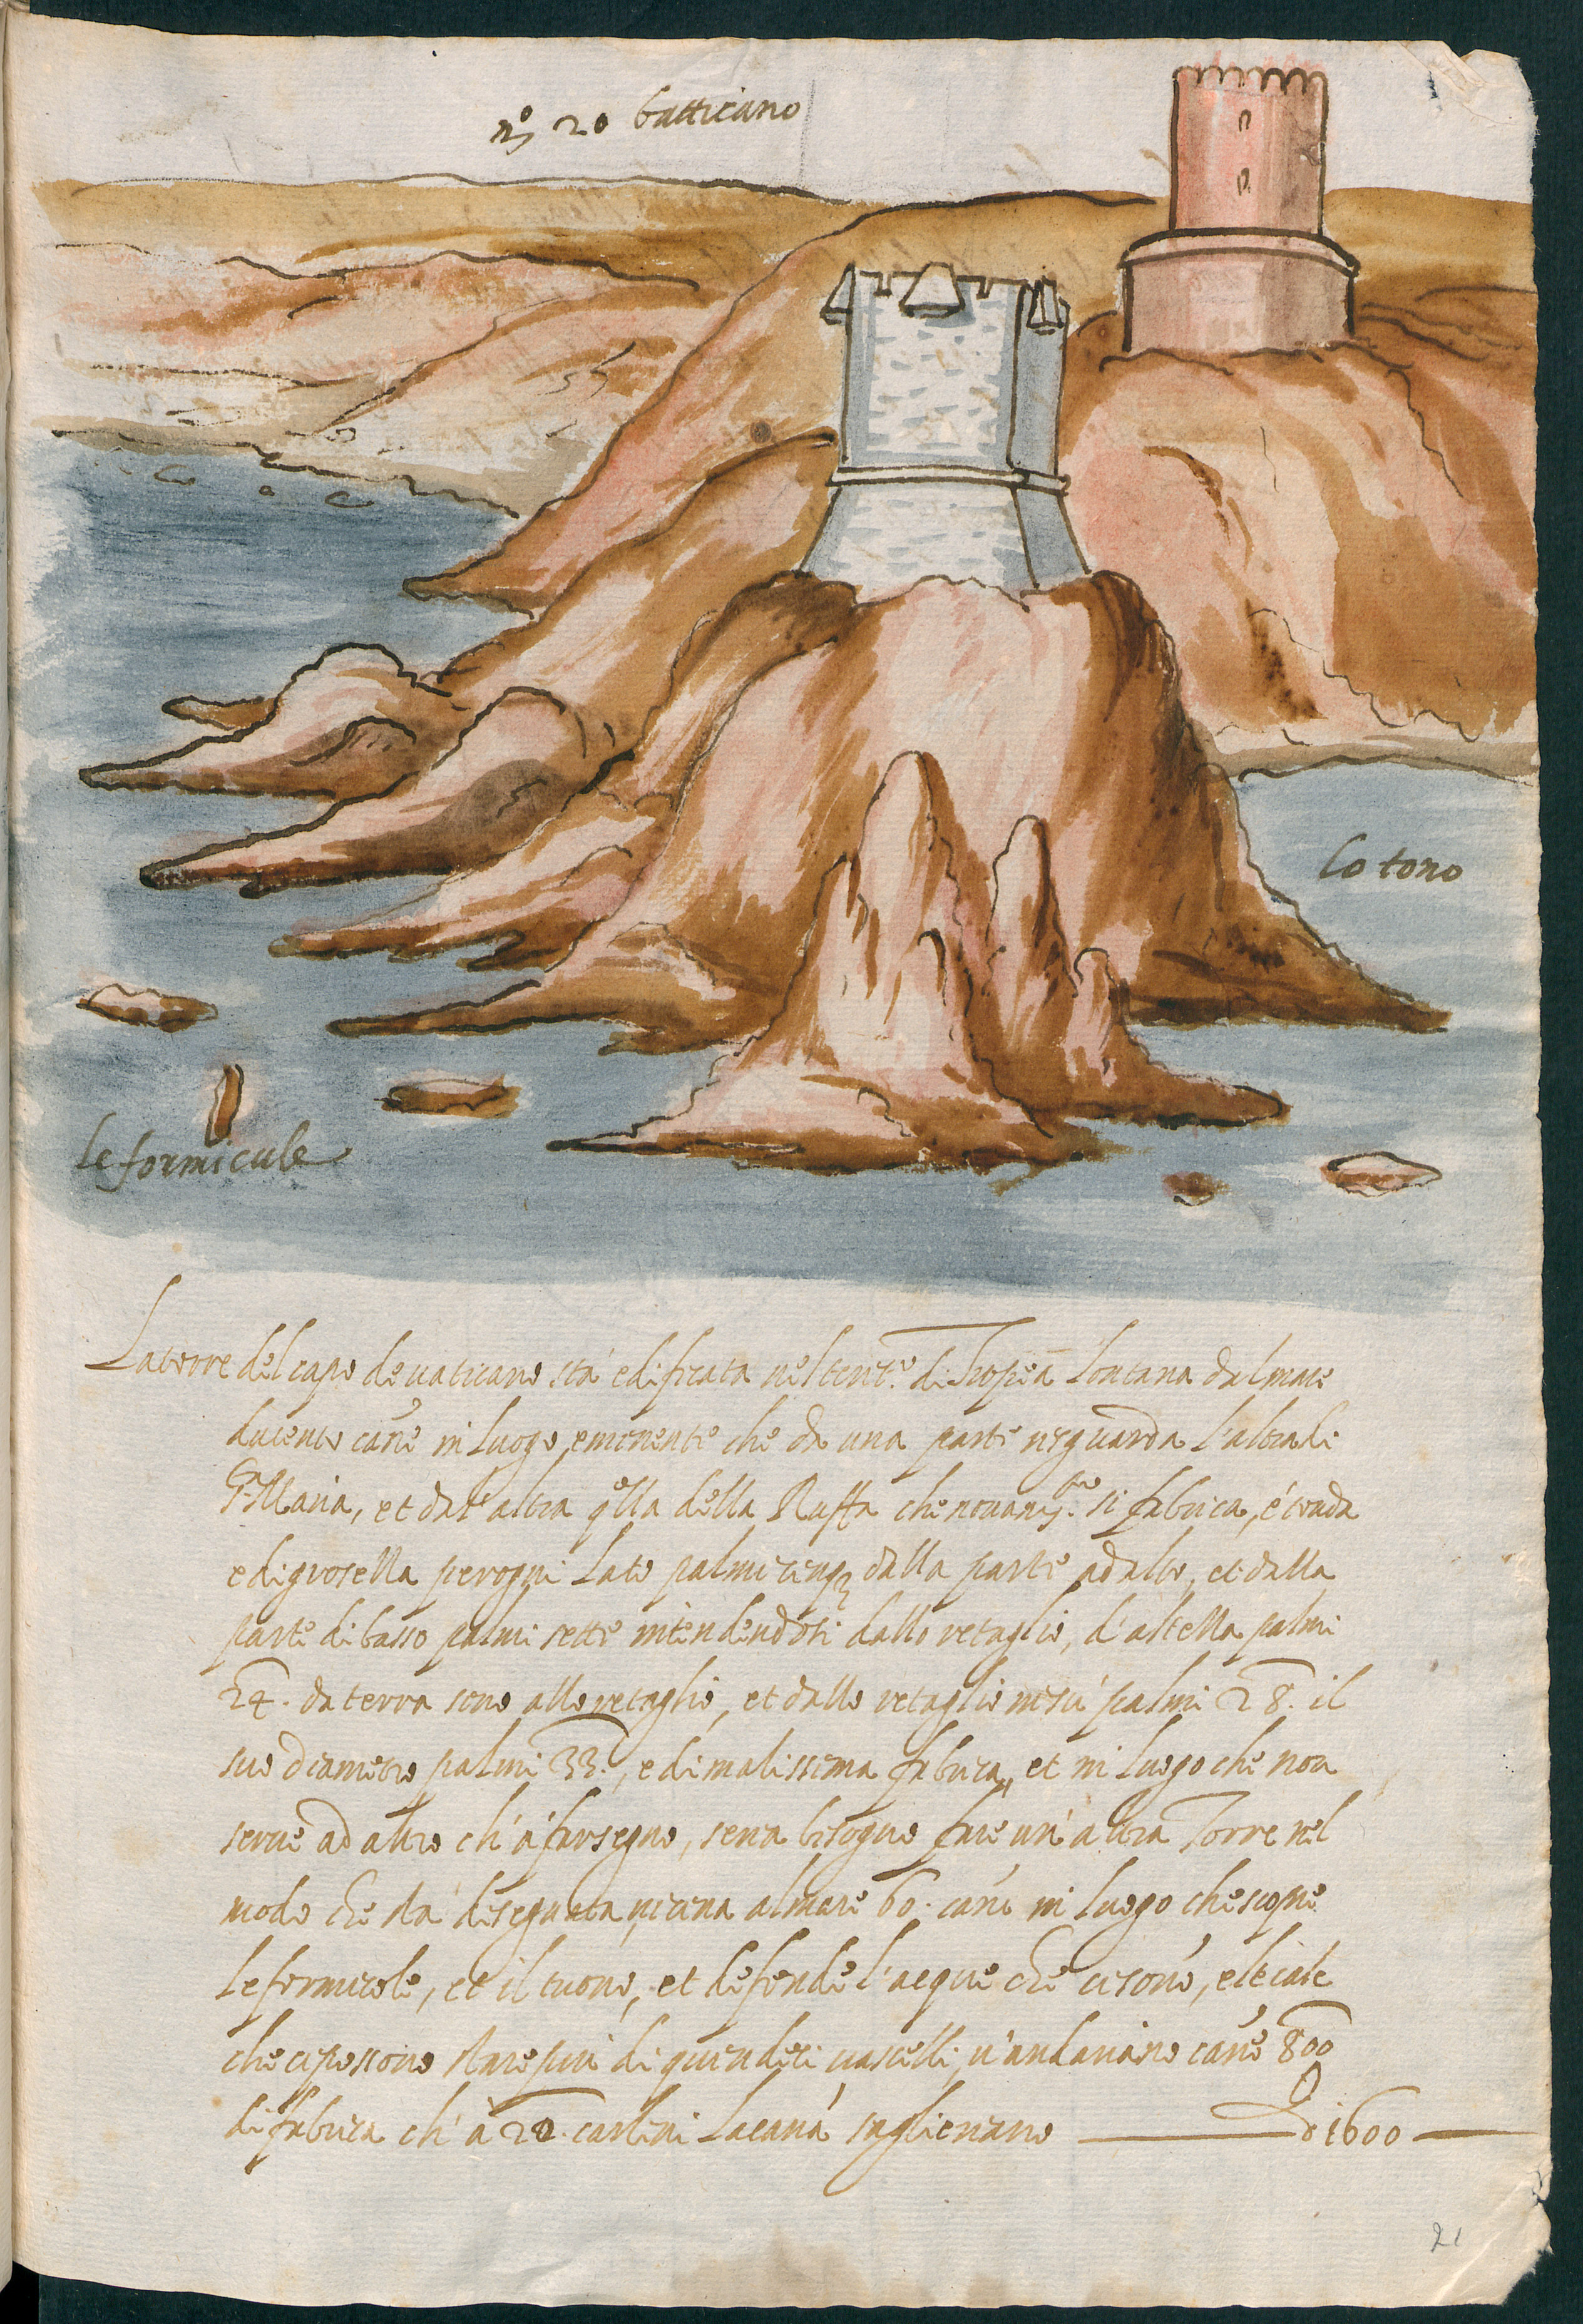 nº 20 batticano
lo tono
le formicule
La torre del capo de vaticano sta' edificata nel tenit.º di Tropea lontana dal mare
ducento cane in luogo eminente che da una parte risguarda l'altra di
S.ta Maria, et dal'altra q.lla della Ruffa che novam.te si fabrica, é tonda
e di grosella per ogni lato palmi cinq; dalla parte ad alto, et dalla
parte di basso palmi sette intendendosi dallo retaglio, d'altella palmi
24. da terra sino allo retaglio, et dallo retaglio in su' palmi 28. il
suo diametro palmi 33., e di malissima fabrica, et in luogo che non
serve ad altro ch'a' far segno, seria bisogno fare un'altra Torre nel
modo che sta' desegnata, vicina al mare 60. cane in luogo che scopre
le formicole, et il tuono, et defende l'acque che ci sono, e le cale
che ci possono stare piu' di quindeci vascelli, v'andariano cane 800
di fabrica ch'à 20. carlini la cana' saglienano — D 1600 —
21